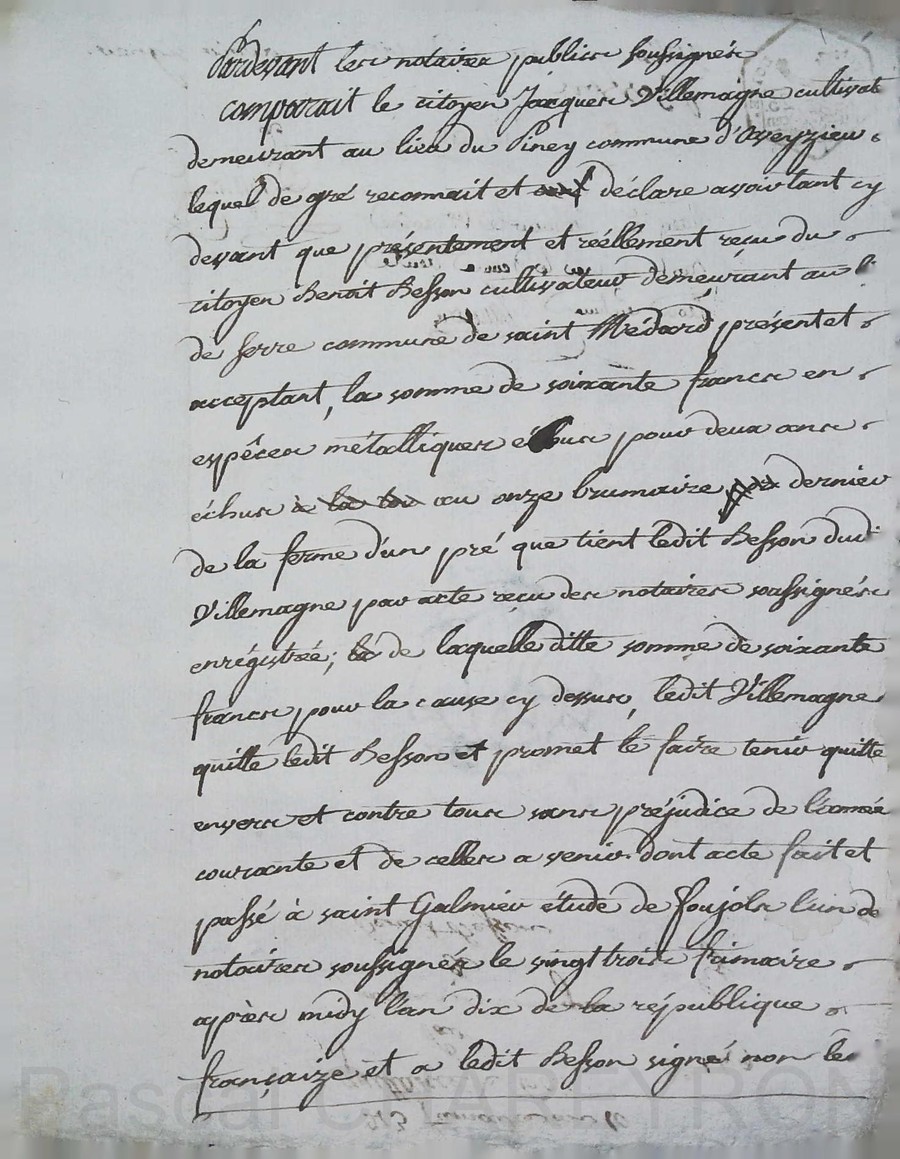 Pardevant les notaires publics soussignés
comparait le citoyen Jacques Villemagne cultivat
demeurant au lieu du Piney commune d'Aveyzieu
lequel de gré reconnait et déclare avoir tant cy
devant que présentement et réellement reçu du
citoyen Benoit Besson cultivateur demeurant au l
de serre commune de saint Médard présent et
acceptant, la somme de soixante francs en
espèces métalliques pour deux ans
échus a la au onze brumaire dernier
de la ferme d'un pré que tient ledit Besson dud
Villemagne par acte reçu des notaires soussignés
enrégistrée; de laquelle ditte somme de soixante
francs pour la cause cy dessus, ledit Villemagne
quitte ledit Besson et promet le faire tenir quitte
envers et contre tous sans préjudice de l'année
courante et de celles a venir. dont acte fait et
passé à saint Galmier étude de Foujols l'un de
notaires soussignés le vingt trois frimaire
après midy l'an dix de la république
françaize et a ledit Besson signé non le
Pascal CHABEYRON